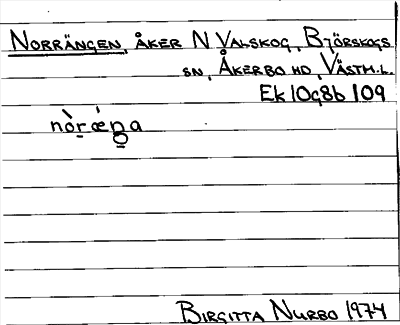 NORRÄNGEN, ÅKER N VALSKOG, BJÖRSKOGS
SN, ÅKERBO HD, VÄSTM.L.
Ek 10g8b 109
nòrǽŋa
BIRGITTA NURBO 1974